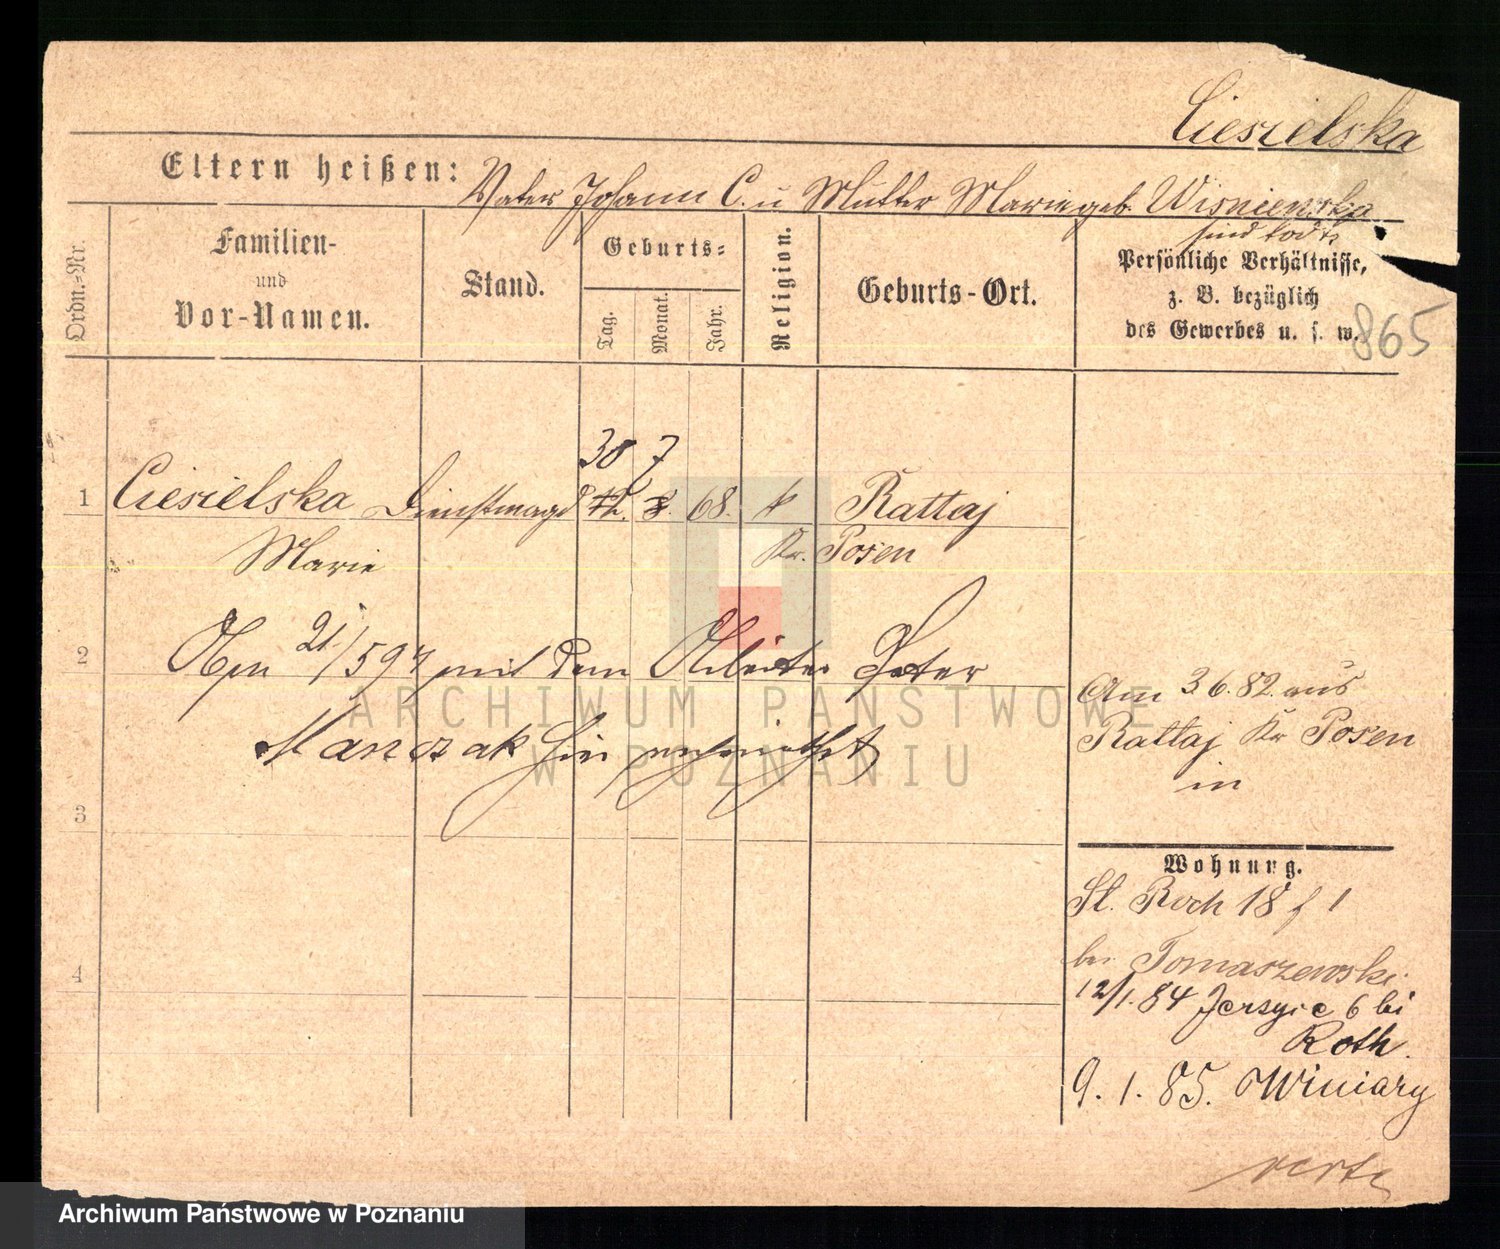 Ciesielska
Eltern heißen: Vater Johann C. u Mutter Marie geb. Wisniewska
sind todt
Ordn.=Nr.
Familien-
und
Vor-Namen.
Stand.
Geburts=
Tag.
Monat.
Jahr.
Religion.
Geburts-Ort.
Persönliche Verhältnisse,
z. B. bezüglich
des Gewerbes u. s. w.
865
30 7
1 Ciesielska Dienstmagd 12. 8. 68. k Rattaj
Marie Kr. Posen
2 Am 21/5 97 mit dem Arbeiter Peter
Manczak hier verheirathet
Am 3.6.82. aus
Rattaj Kr Posen
in
3
Wohnung.
St. Roch 18 f 1
bei Tomaszewski
4
12/1.84 Jersyce 6 bei
Roth.
9. 1. 85. Winiary
verte
ARCHIWUM PAŃSTWOWE
W POZNANIU
Archiwum Państwowe w Poznaniu